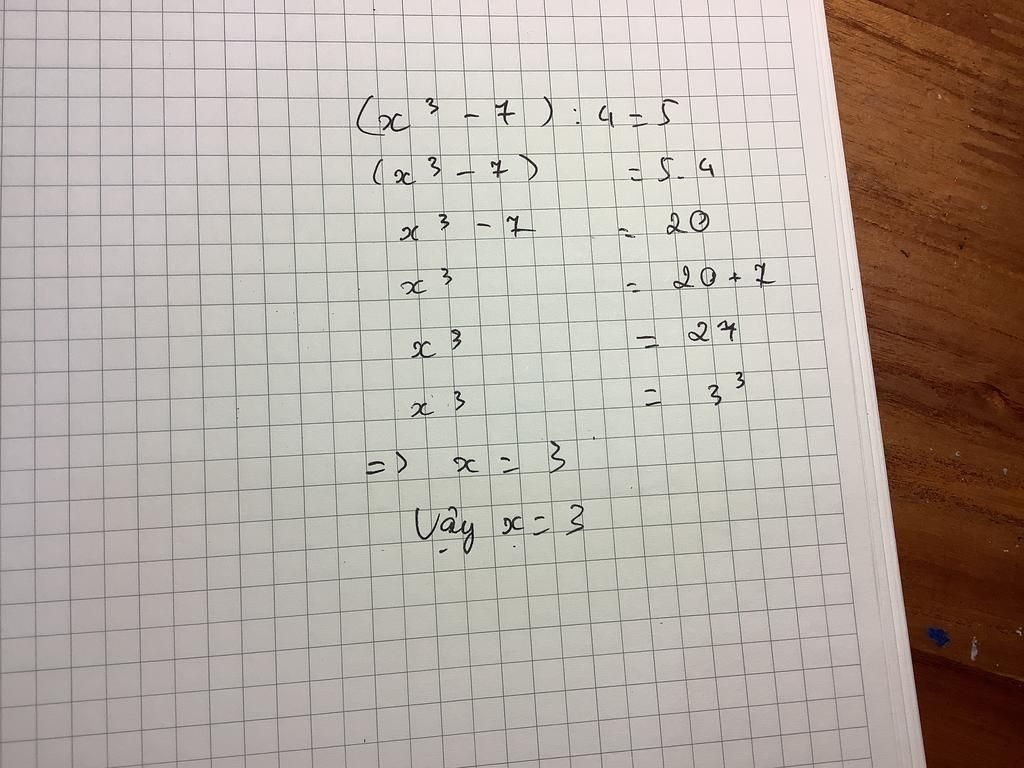 (x³ - 7) : 4 = 5
(x³ - 7) = 5.4
x³ - 7 = 20
x³ = 20 + 7
x³ = 27
x³ = 3³
=> x = 3
Vậy x = 3